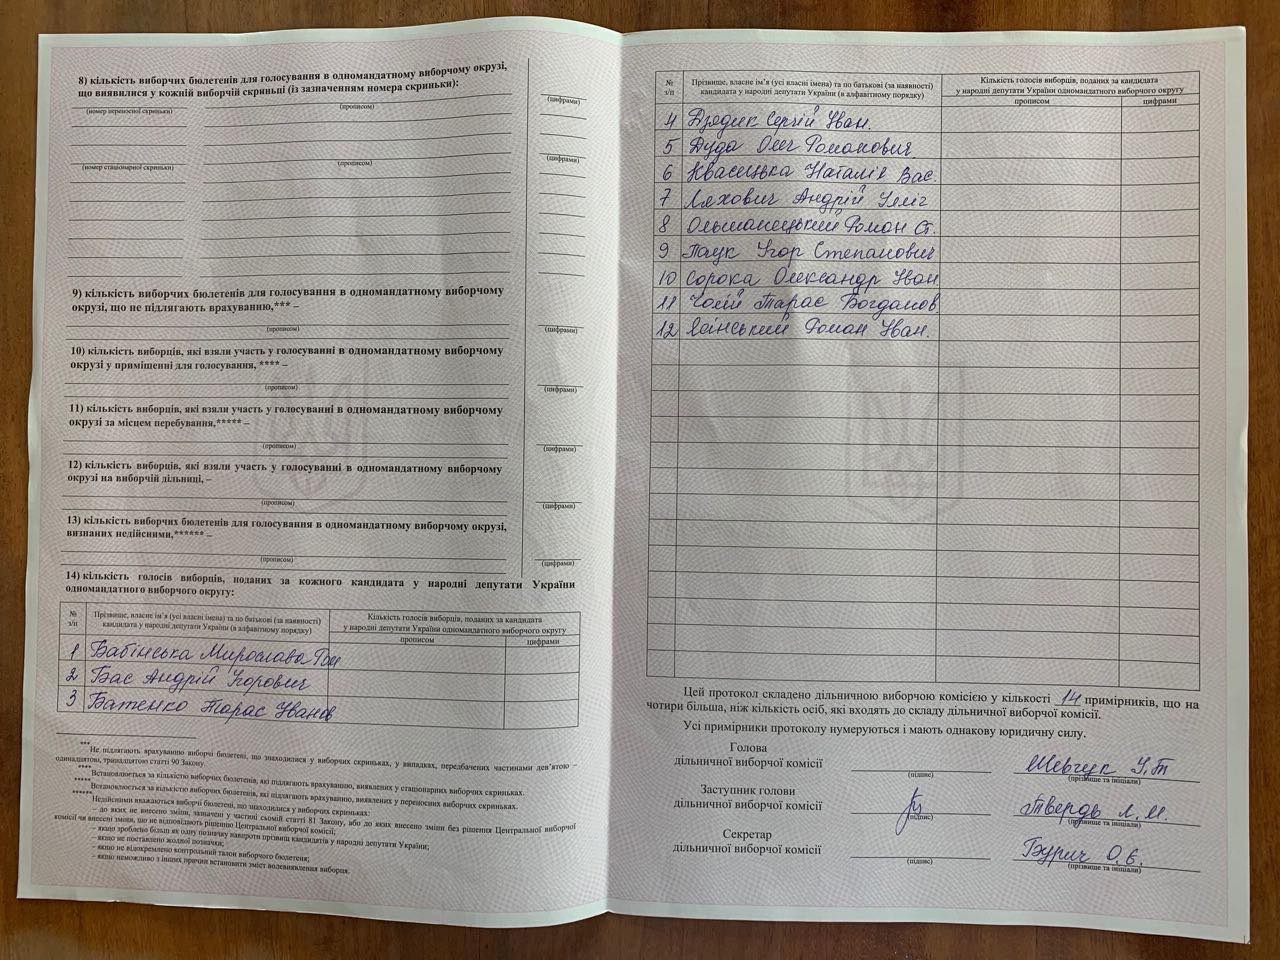 8) кількість виборчих бюлетенів для голосування в одномандатному виборчому окрузі,
що виявилися у кожній виборчій скриньці (із зазначенням номера скриньки):
(номер переносної скриньки) (прописом) (цифрами)
(номер стаціонарної скриньки) (прописом) (цифрами)
9) кількість виборчих бюлетенів для голосування в одномандатному виборчому
окрузі, що не підлягають врахуванню,*** –
(прописом) (цифрами)
10) кількість виборців, які взяли участь у голосуванні в одномандатному виборчому
окрузі у приміщенні для голосування, **** –
(прописом) (цифрами)
11) кількість виборців, які взяли участь у голосуванні в одномандатному виборчому
окрузі за місцем перебування,***** –
(прописом) (цифрами)
12) кількість виборців, які взяли участь у голосуванні в одномандатному виборчому
окрузі на виборчій дільниці, –
(прописом) (цифрами)
13) кількість виборчих бюлетенів для голосування в одномандатному виборчому окрузі,
визнаних недійсними,****** –
(прописом) (цифрами)
14) кількість голосів виборців, поданих за кожного кандидата у народні депутати України
одномандатного виборчого округу:
№ з/п Прізвище, власне ім’я (усі власні імена) та по батькові (за наявності) Кількість голосів виборців, поданих за кандидата
кандидата у народні депутати України (в алфавітному порядку) у народні депутати України одномандатного виборчого округу
прописом цифрами
1 Бабінська Мирослава Ром
2 Бас Андрій Ігорович
3 Батенко Тарас Іванов
*** Не підлягають врахуванню виборчі бюлетені, що знаходилися у виборчих скриньках, у випадках, передбачених частинами дев’ятою –
одинадцятою, тринадцятою статті 90 Закону.
**** Встановлюється за кількістю виборчих бюлетенів, які підлягають врахуванню, виявлених у стаціонарних виборчих скриньках.
***** Встановлюється за кількістю виборчих бюлетенів, які підлягають врахуванню, виявлених у переносних виборчих скриньках.
****** Недійсними вважаються виборчі бюлетені, що знаходилися у виборчих скриньках:
– до яких не внесено зміни, зазначені у частині сьомій статті 81 Закону, або до яких внесено зміни без рішення Центральної виборчої
комісії чи внесені зміни, що не відповідають рішенню Центральної виборчої комісії;
– якщо зроблено більш як одну позначку навпроти прізвищ кандидатів у народні депутати України;
– якщо не поставлено жодної позначки;
– якщо не відокремлено контрольний талон виборчого бюлетеня;
– якщо неможливо з інших причин встановити зміст волевиявлення виборця.
№ з/п Прізвище, власне ім’я (усі власні імена) та по батькові (за наявності) Кількість голосів виборців, поданих за кандидата
кандидата у народні депутати України (в алфавітному порядку) у народні депутати України одномандатного виборчого округу
прописом цифрами
4 Дзядик Сергій Іван.
5 Дуда Олег Романович
6 Квасецька Наталія Вас.
7 Ляхович Андрій
8 Ольшанецький Роман Ст.
9 Паук Ігор Степанович
10 Сорока Олександр Іван
11 Чолій Тарас Богданов
12 Ясінський Роман Іван.
Цей протокол складено дільничною виборчою комісією у кількості 14 примірників, що на
чотири більша, ніж кількість осіб, які входять до складу дільничної виборчої комісії.
Усі примірники протоколу нумеруються і мають однакову юридичну силу.
Голова
дільничної виборчої комісії Шевчук І.Т
(підпис) (прізвище та ініціали)
Заступник голови
дільничної виборчої комісії Твердь Л.М.
(підпис) (прізвище та ініціали)
Секретар
дільничної виборчої комісії Бурич О.Є.
(підпис) (прізвище та ініціали)